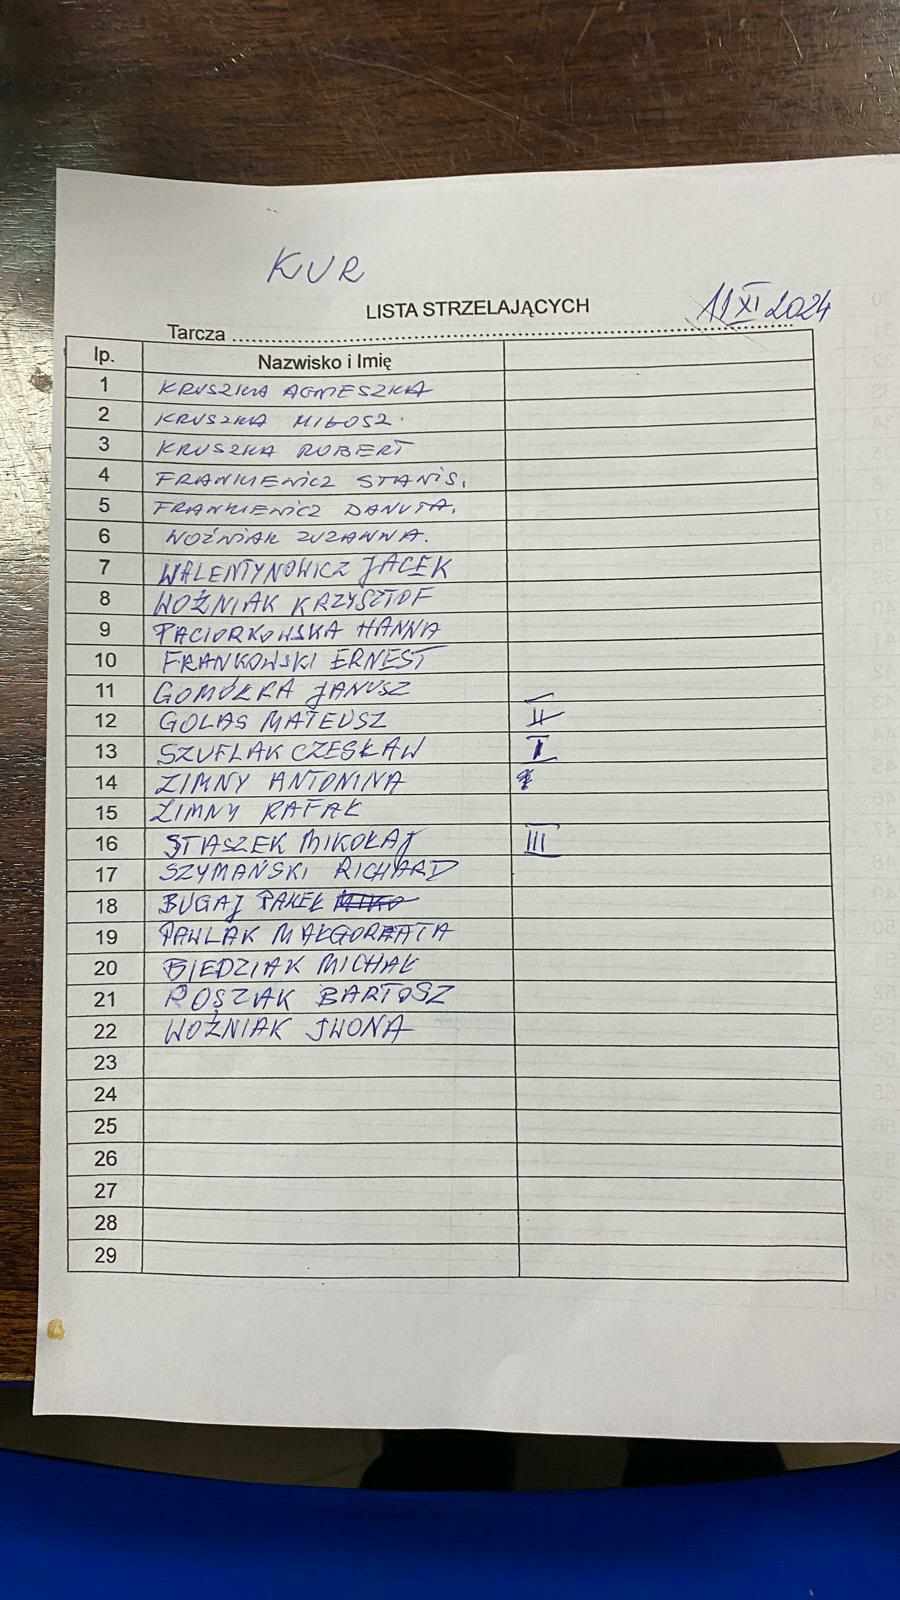 KUR
LISTA STRZELAJĄCYCH 11 XI 2024
Tarcza
lp. Nazwisko i Imię
1 KRUSZKA AGNIESZKA
2 KRUSZKA MIŁOSZ.
3 KRUSZKA ROBERT
4 FRANKIEWICZ STANIS.
5 FRANKIEWICZ DANUTA.
6 WOŹNIAK ZUZANNA.
7 WALENTYNOWICZ JACEK
8 WOŹNIAK KRZYSZTOF
9 PACIORKOWSKA HANNA
10 FRANKOWSKI ERNEST
11 GOMÓŁKA JANUSZ
12 GOLAS MATEUSZ II
13 SZUFLAK CZESŁAW I
14 ZIMNY ANTONINA
15 ZIMNY RAFAŁ
16 STASZEK MIKOŁAJ III
17 SZYMAŃSKI RICHARD
18 BUGAJ PAWEŁ
19 PAWLAK MAŁGORZATA
20 BIEDZIAK MICHAŁ
21 ROSZAK BARTOSZ
22 WOŹNIAK IWONA
23
24
25
26
27
28
29